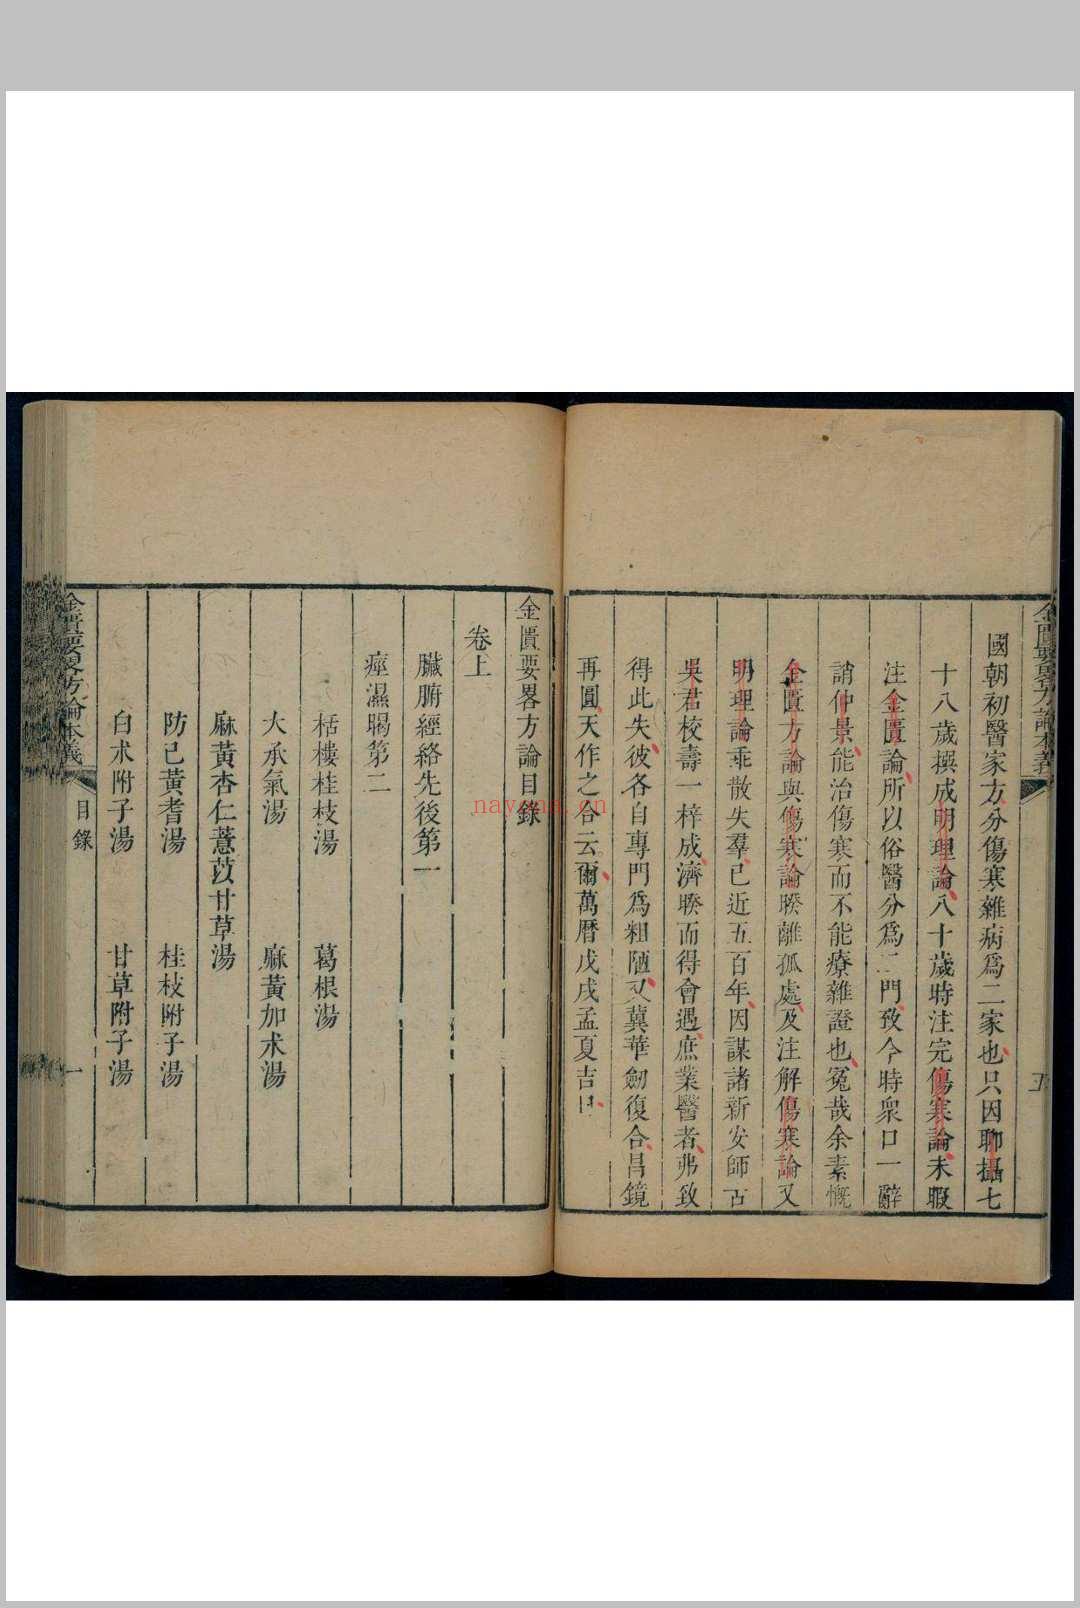 國朝初醫家方分傷寒雜病爲二家也只因聊攝七
十八歲撰成明理論八十歲時注完傷寒論未暇
注金匱論所以俗醫分爲二門致今時衆口一辭
誚仲景能治傷寒而不能療雜證也冤哉余素慨
金匱方論與傷寒論睽離孤處及注解傷寒論又
明理論乖散失羣已近五百年因謀諸新安師古
吳君校壽一梓成濟睽而得會遇庶業醫者弗致
得此失彼各自專門爲粗陋又冀華劒復合昌鏡
再圓天作之合云爾萬曆戊戌孟夏吉日
金匱要畧方論目錄
卷上
臟腑經絡先後第一
痙濕暍第二
栝樓桂枝湯 葛根湯
大承氣湯 麻黃加朮湯
麻黃杏仁薏苡甘草湯
防己黃耆湯 桂枝附子湯
白朮附子湯 甘草附子湯
金匱要畧方論本義 目錄 一
nayona.cn